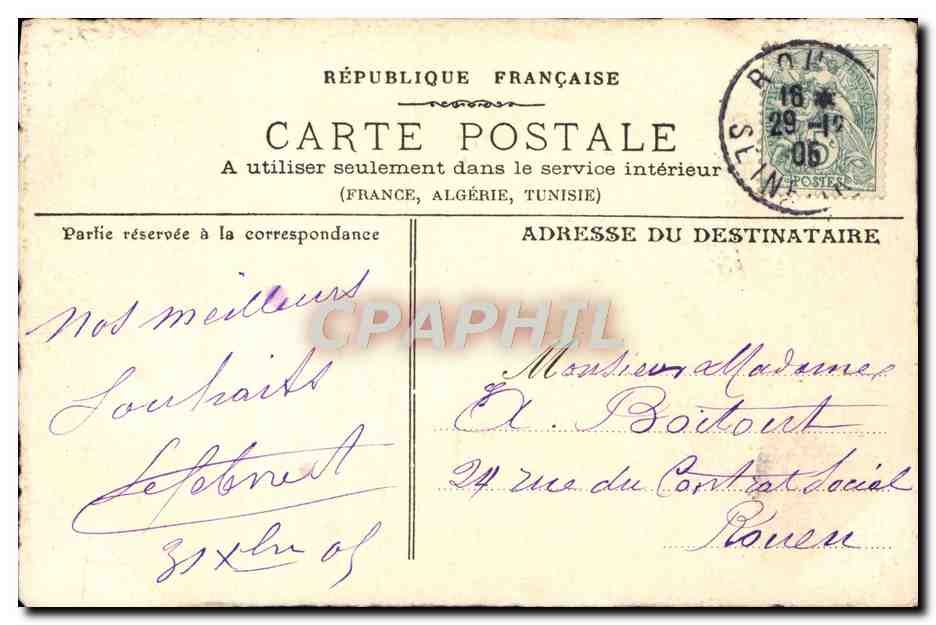 RÉPUBLIQUE FRANÇAISE
CARTE POSTALE
A utiliser seulement dans le service intérieur
(FRANCE, ALGÉRIE, TUNISIE)
ROU
16
29 -12
05
SEINE
POSTES
Partie réservée à la correspondance
Nos meilleurs
Souhaits
31 Xbre 05
ADRESSE DU DESTINATAIRE
Monsieur Madame
A. Boitout
24 rue du Contrat Social
Rouen
CPAPHIL